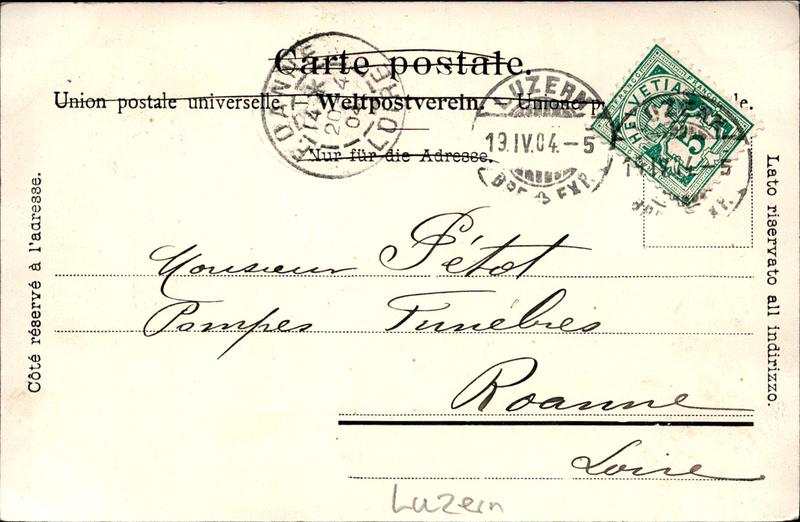 Carte postale.
Union postale universelle. Weltpostverein. Unione p le.
Nur für die Adresse.
Côté réservé à l'adresse.
Lato riservato all indirizzo.
ROANNE
LOIRE
20
04
LUZERN
19.IV.04.-5
BRF. EXP.
HELVETIA
5
Monsieur Pétot
Pompes Funèbres
Roanne
Loire
Luzern